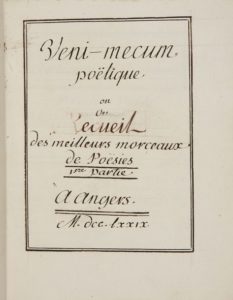 Veni-mecum
poëtique.
ou
Recueil
des meilleurs morceaux
de Poësies
1ere partie.
A Angers.
M. dcc. lxxix.